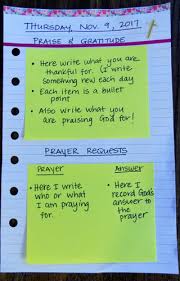 THURSDAY, NOV. 9, 2017
PRAISE & GRATITUDE
• Here write what you are
thankful for. (I write
something new each day
• Each item is a bullet
point
• Also write what you
are praising God for!
PRAYER REQUESTS
Prayer Answer
• Here I write • Here I
who or what record God's
I am praying answer to the
for. prayer